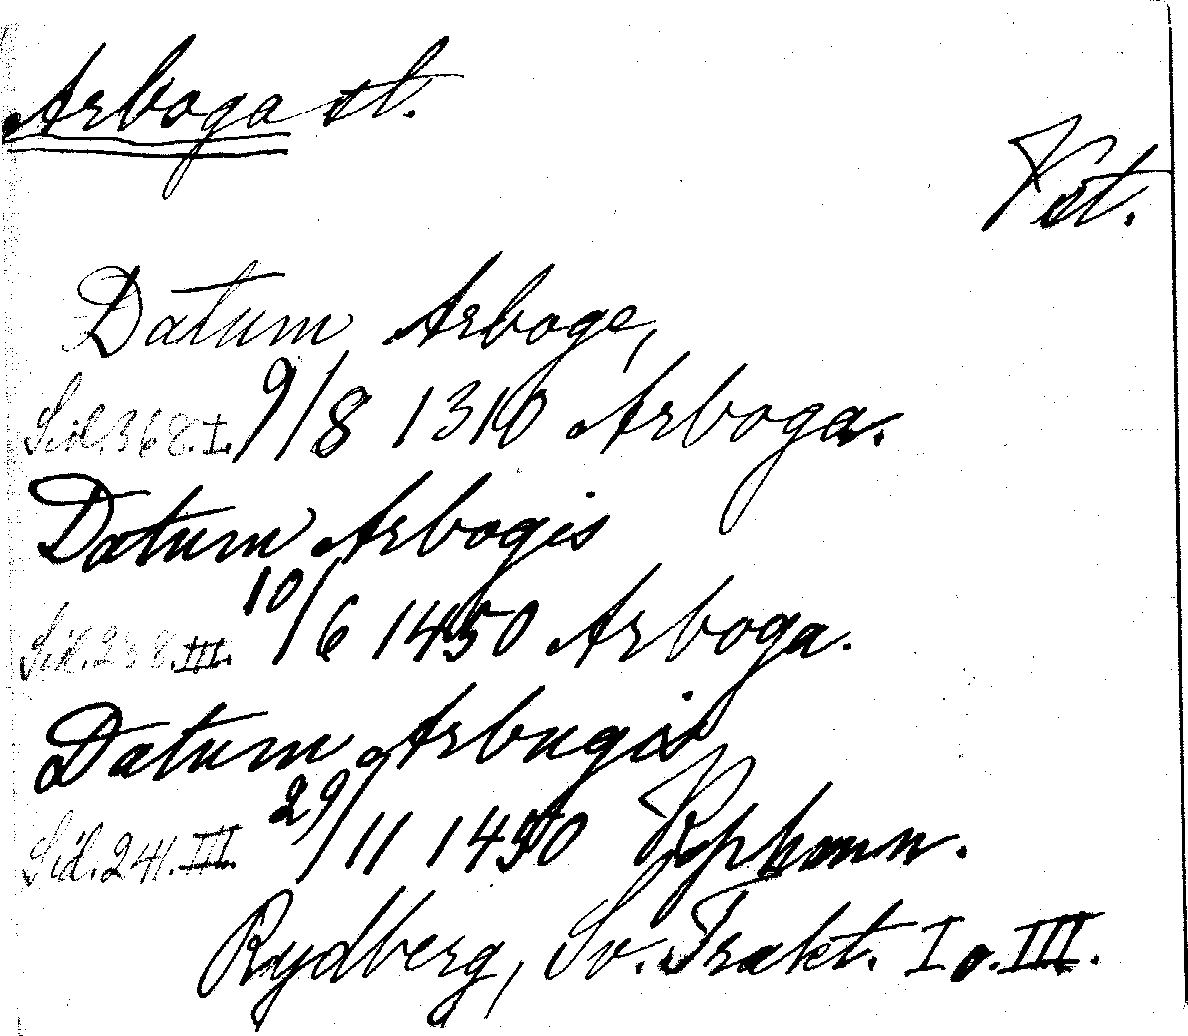 Arboga st.
Vst.
Datum Arboge,
Sid. 368. I. 9/8 1310 Arboga.
Datum Arbogis
Sid. 238. III. 10/6 1450 Arboga.
Datum Arbugis
Sid. 241. III. 29/11 1450 Kphamn.
Rydberg, Sv. Trakt. I o. III.